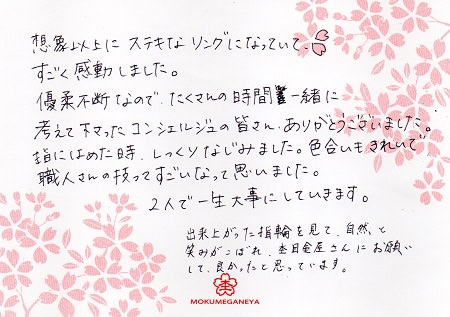 想象以上に ステキな リングになっていて、
すごく感動しました。
優柔不断なので、たくさんの時間 一緒に
考えて下さったコンシェルジュの皆さん、ありがとうございました。
指にはめた時、しっくりなじみました。色合いもきれいで
職人さんの技ってすごいなって思いました。
2人で一生大事にしていきます。
出来上がった指輪を見て、自然と
笑みがこぼれ、杢目金屋さんにお願い
して、良かったと思っています。
杢
MOKUMEGANEYA